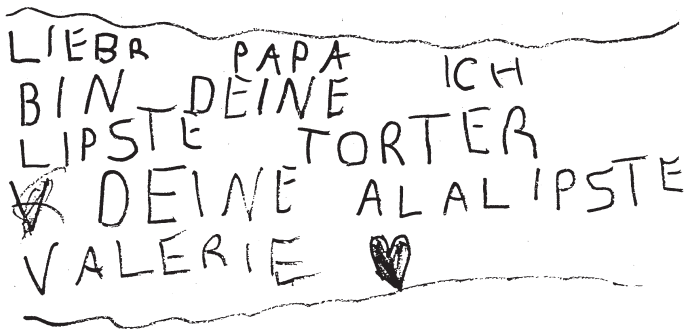 LIEBR PAPA ICH
BIN DEINE
LIPSTE TORTER
DEINE ALALIPSTE
VALERIE